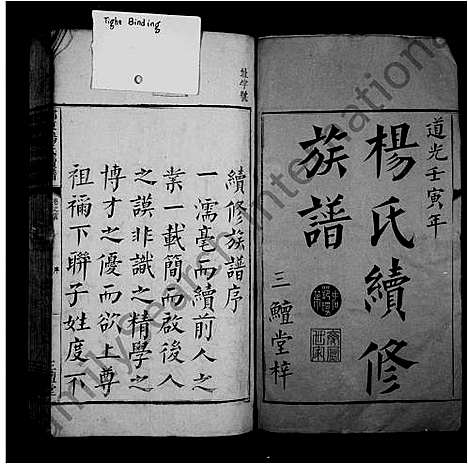 Tight Binding
道光壬寅年
楊氏續修
族譜
三鱣堂梓
續修族譜序
一濡毫而續前人之
業一載簡而啟後人
之謨非識之精學之
博才之優而欲上尊
祖禰下聯子姓度不
FamilySearch International